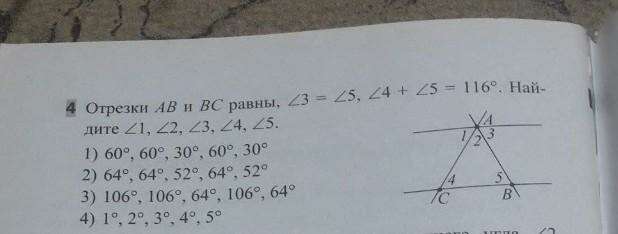 4 Отрезки AB и BC равны, ∠3 = ∠5, ∠4 + ∠5 = 116°. Най-
дите ∠1, ∠2, ∠3, ∠4, ∠5.
1) 60°, 60°, 30°, 60°, 30°
2) 64°, 64°, 52°, 64°, 52°
3) 106°, 106°, 64°, 106°, 64°
4) 1°, 2°, 3°, 4°, 5°
A
1 2 3
4 5
C B
угла ∠2